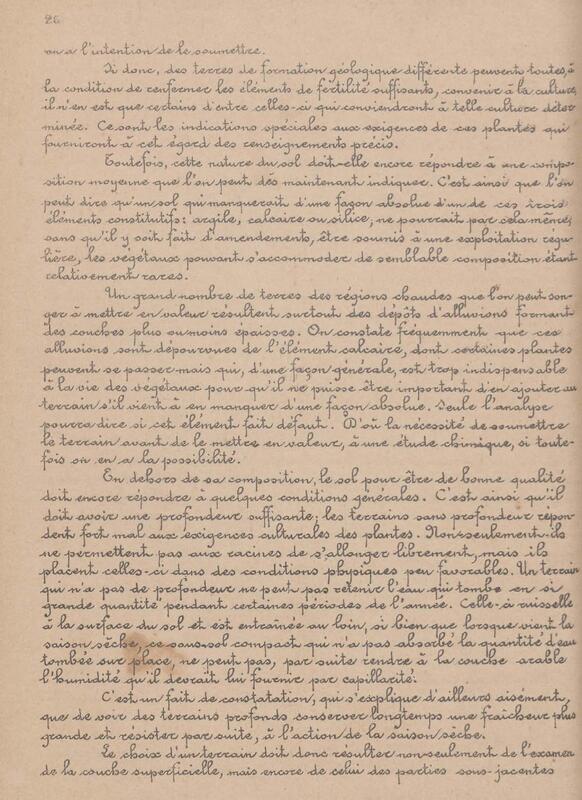 26
on a l'intention de le soumettre.
Si donc, des terres de formation géologique différente peuvent toutes, à
la condition de renfermer les éléments de fertilité suffisants, convenir à la culture,
il n'en est que certains d'entre celles-ci qui conviendront à telle culture déter
minée. Ce sont les indications spéciales aux exigences de ces plantes qui
fourniront à cet égard des renseignements précis.
Toutefois, cette nature du sol doit-elle encore répondre à une compo-
sition moyenne que l'on peut dès maintenant indiquer. C'est ainsi que l'on
peut dire qu'un sol qui manquerait d'une façon absolue d'un de ces trois
éléments constitutifs: argile, calcaire ou silice, ne pourrait par cela même,
sans qu'il y soit fait d'amendements, être soumis à une exploitation régu-
lière, les végétaux pouvant s'accommoder de semblable composition étant
relativement rares.
Un grand nombre de terres des régions chaudes que l'on peut son-
ger à mettre en valeur résultent surtout des depôts d'alluvions formant
des couches plus ou moins épaisses. On constate fréquemment que ces
alluvions sont dépourvues de l'élément calcaire, dont certaines plantes
peuvent se passer mais qui, d'une façon générale, est trop indispensable
à la vie des végétaux pour qu'il ne puisse être important d'en ajouter au
terrain s'il vient à en manquer d'une façon absolue. Seule l'analyse
pourra dire si cet élément fait défaut. D'où la nécessité de soumettre
le terrain avant de le mettre en valeur, à une étude chimique, si toute-
fois on en a la possibilité.
En dehors de sa composition, le sol pour être de bonne qualité
doit encore répondre à quelques conditions générales. C'est ainsi qu'il
doit avoir une profondeur suffisante; les terrains sans profondeur répon-
dent fort mal aux exigences culturales des plantes. Non seulement ils
ne permettent pas aux racines de s'allonger librement, mais ils
placent celles-ci dans des conditions physiques peu favorables. Un terrain
qui n'a pas de profondeur ne peut pas retenir l'eau qui tombe en si
grande quantité pendant certaines périodes de l'année. Celle-là ruisselle
à la surface du sol et est entraînée au loin, si bien que lorsque vient la
saison sèche, ce sous-sol compact qui n'a pas absorbé la quantité d'eau
tombée sur place, ne peut pas, par suite rendre à la couche arable
l'humidité qu'il devrait lui fournir par capillarité.
C'est un fait de constatation, qui s'explique d'ailleurs aisément,
que de voir des terrains profonds conserver longtemps une fraîcheur plus
grande et résister par suite, à l'action de la saison sèche.
Le choix d'un terrain doit donc résulter non seulement de l'examen
de la couche superficielle, mais encore de celui des parties sous-jacentes